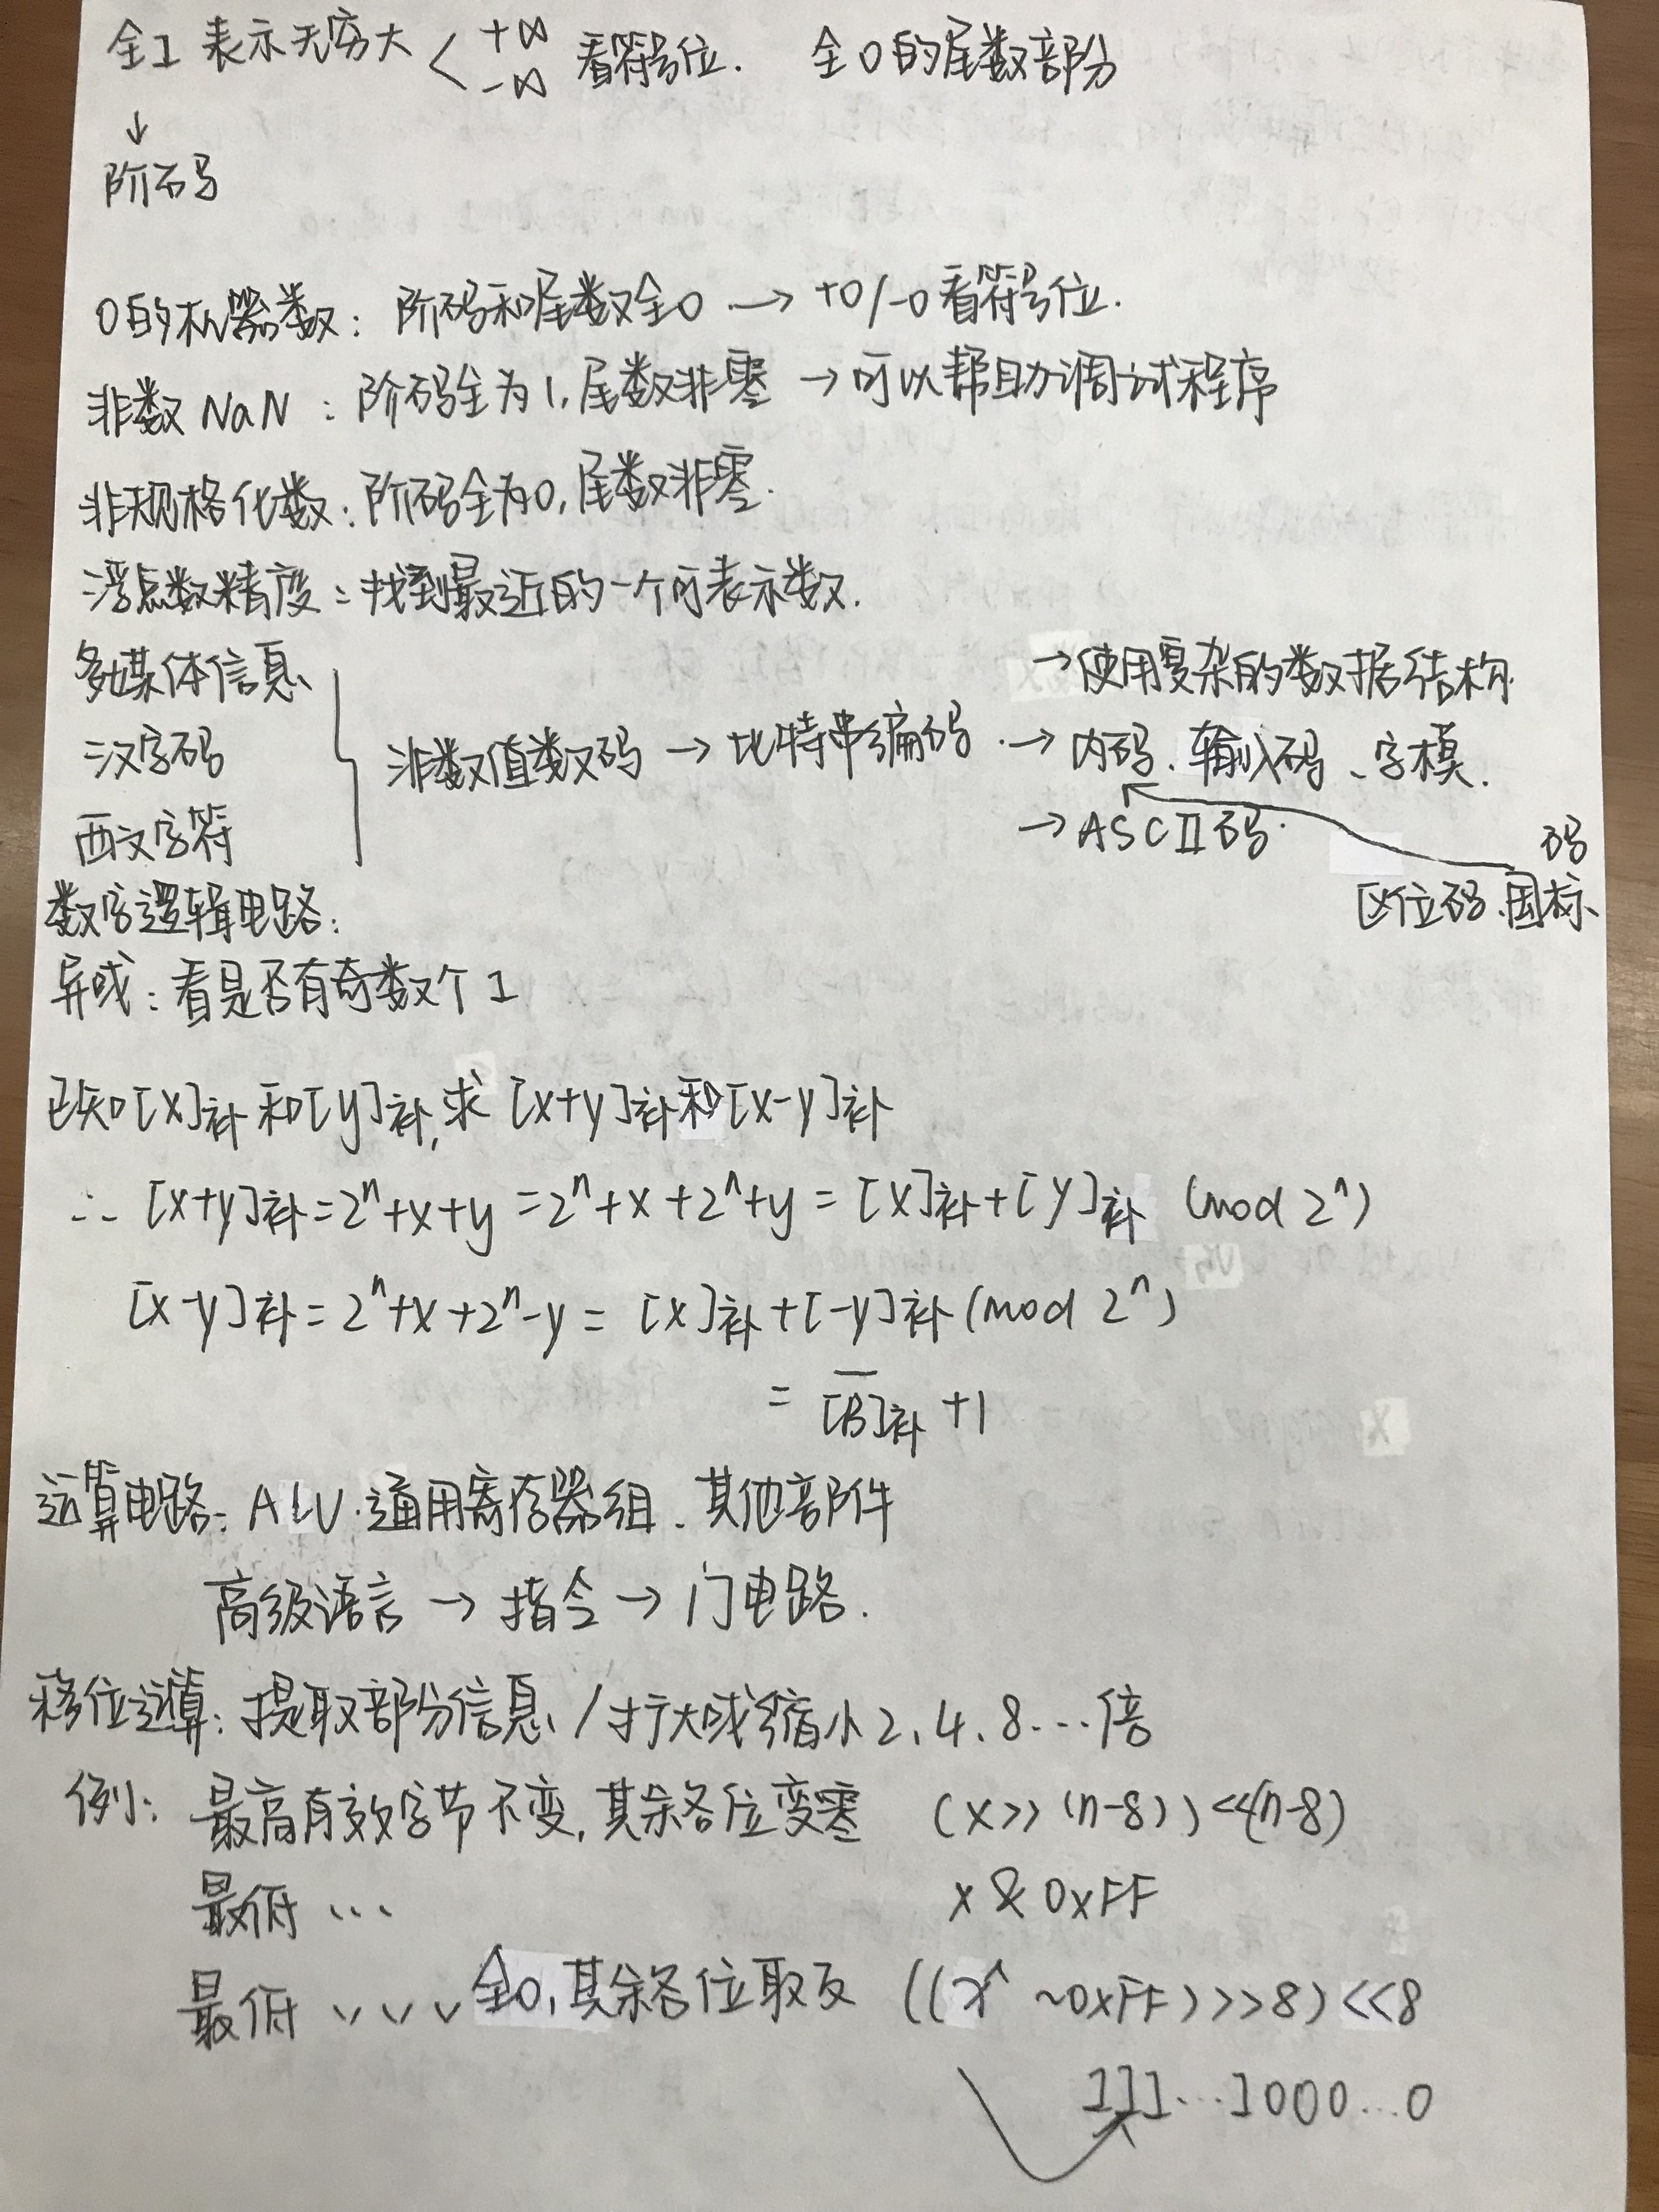 全1 表示无穷大 < +∞ -∞ 看符号位. 全0的尾数部分
↓
阶码
0的机器数: 阶码和尾数全0 → +0/-0 看符号位.
非数 NaN : 阶码全为1,尾数非零 → 可以帮助调试程序
非规格化数: 阶码全为0,尾数非零.
浮点数精度: 找到最近的一个可表示数.
多媒体信息 → 使用复杂的数据结构
汉字码 非数值数码 → 比特串编码 · → 内码、输入码、字模.
西文字符 → ASCII码.
区位码、国标码
数字逻辑电路:
异或: 看是否有奇数个1
已知[x]补和[y]补,求 [x+y]补和[x-y]补
∴ [x+y]补=2ⁿ+x+y=2ⁿ+x+2ⁿ+y=[x]补+[y]补 (mod 2ⁿ)
[x-y]补=2ⁿ+x+2ⁿ-y= [x]补+[-y]补 (mod 2ⁿ)
= [B̅]补 +1
运算电路: ALU、通用寄存器组、其他部件
高级语言 → 指令 → 门电路.
移位运算: 提取部分信息 / 扩大或缩小2、4、8…倍
例: 最高有效字节不变,其余各位变零 (x>>(n-8))<<(n-8)
最低 … x & 0xFF
最低 、、、、全0,其余各位取反 ((x^ ~0xFF)>>8)<<8
111…1000…0